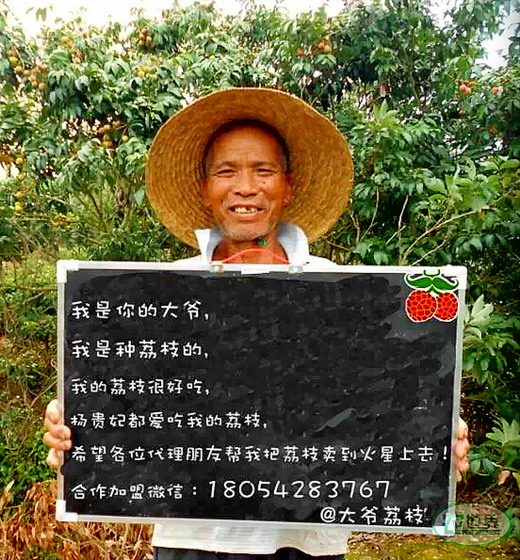 我是你的大爷，
我是种荔枝的，
我的荔枝很好吃，
杨贵妃都爱吃我的荔枝，
希望各位代理朋友帮我把荔枝卖到火星上去！
合作加盟微信：18054283767
@大爷荔枝